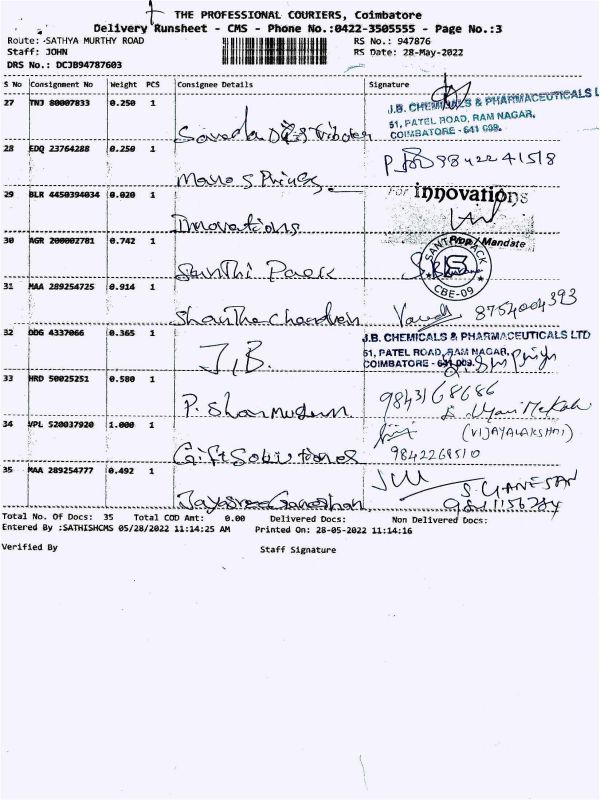 THE PROFESSIONAL COURIERS, Coimbatore
Delivery Runsheet - CMS - Phone No.:0422-3505555 - Page No.:3
Route: -SATHYA MURTHY ROAD RS No.: 947876
Staff: JOHN RS Date: 28-May-2022
DRS No.: DCJB94787603
S No Consignment No Weight PCS Consignee Details Signature
27 TNJ 80007833 0.250 1
J.B. CHEMICALS & PHARMACEUTICALS L
51, PATEL ROAD, RAM NAGAR,
COIMBATORE - 641 009.
28 EDQ 23764288 0.250 1
9842241518
29 BLR 4450394034 0.020 1
For innovations
Innovations
Prop / Mandate
30 AGR 200002781 0.742 1
Santhi Pack
SANTHI PACK
CBE-09
31 MAA 289254725 0.914 1
Shantha Chandran 8754004393
32 ODG 4337066 0.365 1
J.B. CHEMICALS & PHARMACEUTICALS LTD
51, PATEL ROAD, RAM NAGAR,
COIMBATORE - 641 009.
J.B.
33 HRD 50025251 0.580 1
9843168686
P. Shanmugam
34 VPL 520037920 1.000 1
(VIJAYALAKSHMI)
9842268510
Gift Solutions
35 MAA 289254777 0.492 1
S. GANESAN
Jayasree Ganeshan
Total No. Of Docs: 35 Total COD Amt: 0.00 Delivered Docs: Non Delivered Docs:
Entered By :SATHISHCMS 05/28/2022 11:14:25 AM Printed On: 28-05-2022 11:14:16
Verified By Staff Signature